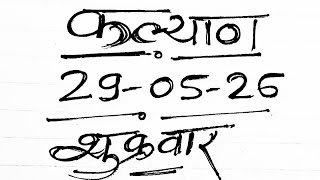 कल्याण
29-05-26
शुक्रवार